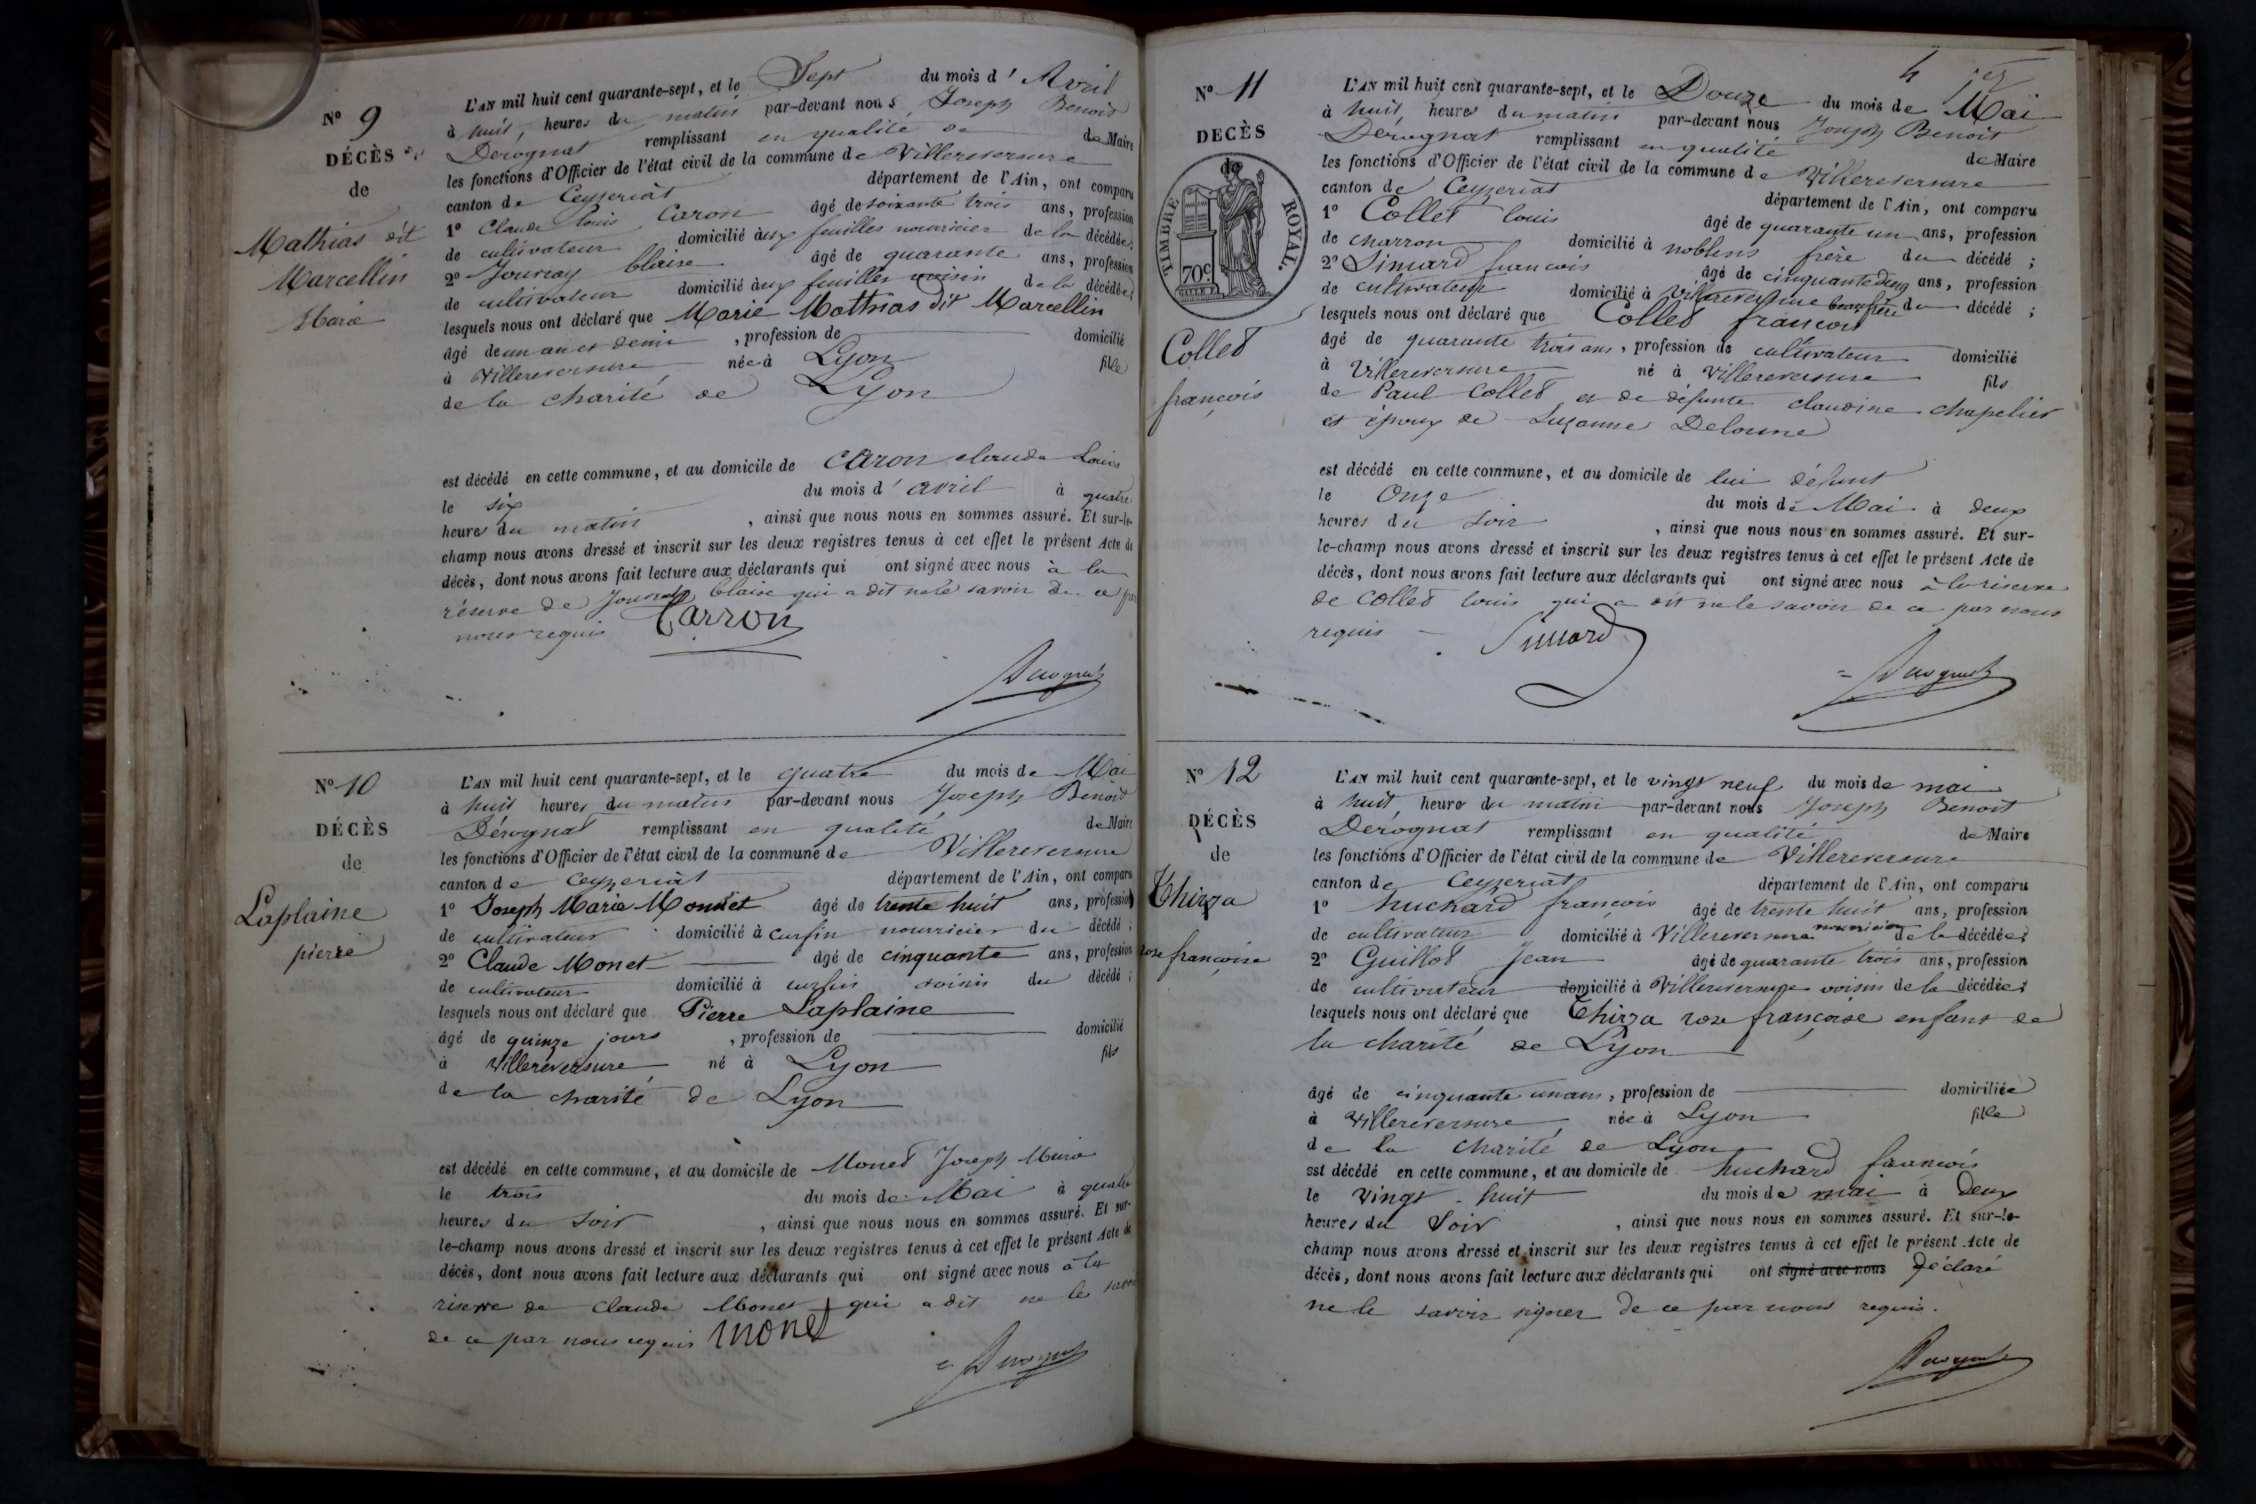 Nº 9
DÉCÈS
de
Mathias dit
Marcellin
Marie
L'AN mil huit cent quarante-sept, et le Sept du mois d'Avril
à huit heures du matin par-devant nous Joseph Benoit
Dérognat remplissant en qualité de de Maire
les fonctions d'Officier de l'état civil de la commune de Villereversure
canton de Ceyzeriat département de l'Ain, ont comparu
1º Claude Louis Caron âgé de soixante trois ans, profession
de cultivateur domicilié aux feuilles nourricier de la décédée;
2º Jouvray blaise âgé de quarante ans, profession
de cultivateur domicilié aux feuilles voisin de la décédée;
lesquels nous ont déclaré que Marie Mathias dit Marcellin
âgé de un an et demi, profession de domicilié
à Villereversure née à Lyon fille
de la charité de Lyon
est décédé en cette commune, et au domicile de Caron claude Louis
le six du mois d'avril à quatre
heures du matin, ainsi que nous nous en sommes assuré. Et sur-le-
champ nous avons dressé et inscrit sur les deux registres tenus à cet effet le présent Acte de
décès, dont nous avons fait lecture aux déclarants qui ont signé avec nous à la
réserve de Jouvray blaise qui a dit ne le savoir de ce par
nous requis Carron
Derognat
Nº 10
DÉCÈS
de
Laplaine
pierre
L'AN mil huit cent quarante-sept, et le quatre du mois de Mai
à huit heures du matin par-devant nous Joseph Benoit
Dérognat remplissant en qualité de Maire
les fonctions d'Officier de l'état civil de la commune de Villereversure
canton de Ceyzeriat département de l'Ain, ont comparu
1º Joseph Marie Monnet âgé de trente huit ans, profession
de cultivateur domicilié à curfin nourricier du décédé;
2º Claude Monet âgé de cinquante ans, profession
de cultivateur domicilié à curfin voisin du décédé;
lesquels nous ont déclaré que Pierre Laplaine
âgé de quinze jours, profession de domicilié
à Villereversure né à Lyon fils
de la charité de Lyon
est décédé en cette commune, et au domicile de Monet Joseph Marie
le trois du mois de Mai à quatre
heures du soir, ainsi que nous nous en sommes assuré. Et sur-
le-champ nous avons dressé et inscrit sur les deux registres tenus à cet effet le présent Acte de
décès, dont nous avons fait lecture aux déclarants qui ont signé avec nous à la
réserve de Claude Monet qui a dit ne le savoir
de ce par nous requis monet
Derognat
Nº 11
DECÈS
de
TIMBRE ROYAL.
70c
Collet
françois
L'AN mil huit cent quarante-sept, et le Douze du mois de Mai
à huit heures du matin par-devant nous Joseph Benoit
Dérognat remplissant en qualité de Maire
les fonctions d'Officier de l'état civil de la commune de Villereversure
canton de Ceyzeriat département de l'Ain, ont comparu
1º Collet louis âgé de quarante un ans, profession
de charron domicilié à noblens frère du décédé;
2º Simard françois âgé de cinquante deux ans, profession
de cultivateur domicilié à Villereversure beau frère du décédé;
lesquels nous ont déclaré que Collet françois
âgé de quarante trois ans, profession de cultivateur domicilié
à Villereversure né à Villereversure fils
de Paul Collet et de défunte claudine chapelier
et époux de Suzanne Delorme
est décédé en cette commune, et au domicile de lui défunt
le Onze du mois de Mai à deux
heures du soir, ainsi que nous nous en sommes assuré. Et sur-
le-champ nous avons dressé et inscrit sur les deux registres tenus à cet effet le présent Acte de
décès, dont nous avons fait lecture aux déclarants qui ont signé avec nous à la réserve
de Collet louis qui a dit ne le savoir de ce par nous
requis Simard
Derognat
Nº 12
DÉCÈS
de
Thirza
rose françoise
L'AN mil huit cent quarante-sept, et le vingt neuf du mois de mai
à huit heures du matin par-devant nous Joseph Benoit
Dérognat remplissant en qualité de Maire
les fonctions d'Officier de l'état civil de la commune de Villereversure
canton de Ceyzeriat département de l'Ain, ont comparu
1º huchard françois âgé de trente huit ans, profession
de cultivateur domicilié à Villereversure nourricier de la décédée;
2º Guillot Jean âgé de quarante trois ans, profession
de cultivateur domicilié à Villereversure voisin de la décédée;
lesquels nous ont déclaré que Thirza rose françoise enfant de
la charité de Lyon
âgé de cinquante un ans, profession de domiciliée
à Villereversure née à Lyon fille
de la charité de Lyon
est décédé en cette commune, et au domicile de huchard françois
le vingt-huit du mois de mai à Deux
heures du Soir, ainsi que nous nous en sommes assuré. Et sur-le-
champ nous avons dressé et inscrit sur les deux registres tenus à cet effet le présent Acte de
décès, dont nous avons fait lecture aux déclarants qui ont signé avec nous déclaré
ne le savoir signer de ce par nous requis.
Derognat